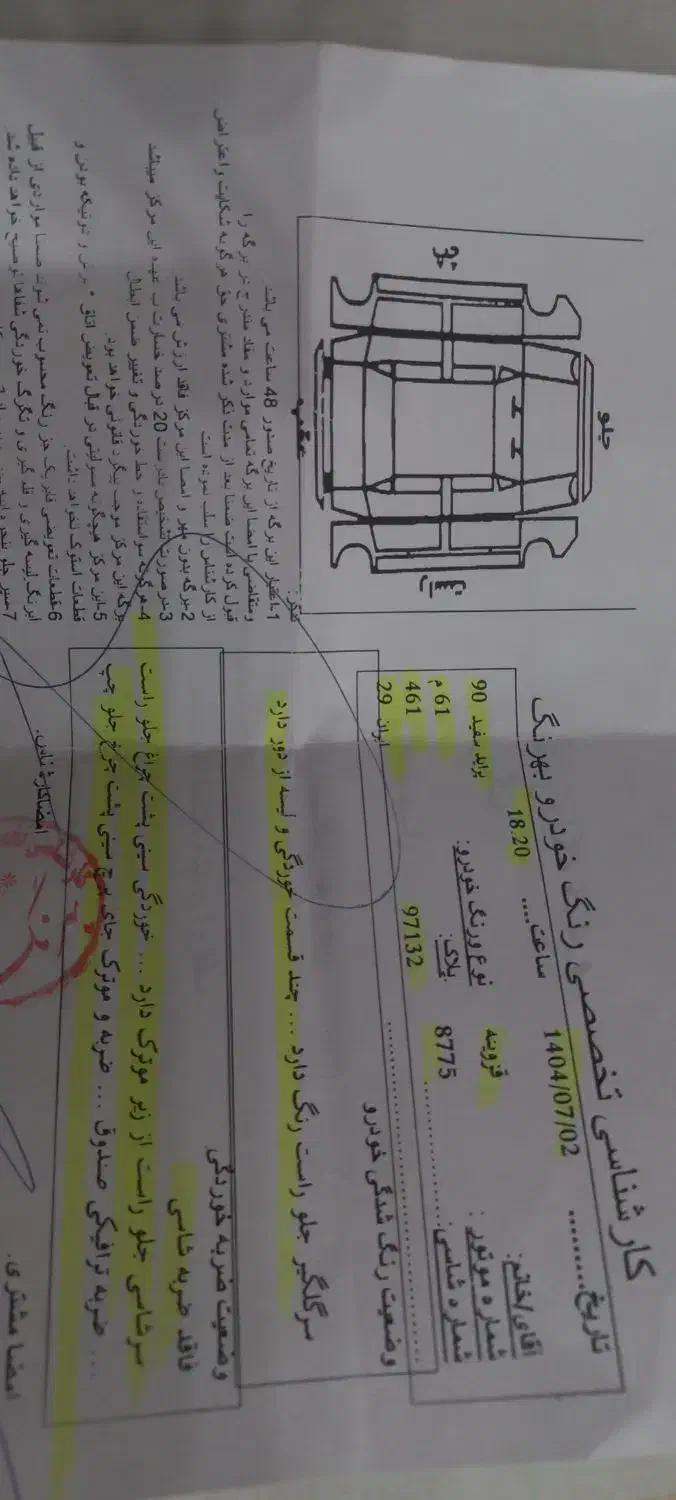 کارشناسی تخصصی رنگ خودرو بهرنگ
تاریخ.......... 1404/07/02
ساعت.... 18.20
آقای/خانم: قزوینه
شماره موتور : 8775
شماره شاسی: 97132
نوع ورنگ خودرو: پراید سفید 90
پلاک: 61 م 461
ایران 29
وضعیت رنگ شدگی خودرو
سرگلگیر جلو راست رنگ دارد ... چند قسمت خوردگی و لیسه از دور دارد
وضعیت ضربه خوردگی
فاقد ضربه شاسی
سرشاسی جلو راست از زیر موترک دارد ... خوردگی سینی پشت چراغ جلو راست
... ضربه ترافیکی صندوق ... ضربه و موترک جای پیچ سینی پشت چرغ جلو چپ
امضا مشتری.
امضاکارشناس.
جلو
عقب
تذکر:
1-اعتبار این برگه از تاریخ صدور 48 ساعت می باشد
ومتقاضی با امضا این برگه تمامی موارد و مفاد مندرج در برگه را
قبول کرده است ضمنا بعد از مدت ذکر شده مشتری حق هرگونه شکایت واعتراض
از کارشناس را سلب نموده است
2-برگه بدون مهر و امضا این مرکز فاقد ارزش می باشد
3-در صورت تشخیص نادرست 20 درصد خسارت ب عهده این مرکز میباشد
4-هرگونه سو استفاده و خط خوردگی و تغییر ضمن ابطال
برگه این مرکز موجب پیگرد قانونی خواهد بود.
5-این مرکز هیچگونه مسولیتی در قبال تعویض اتاق * برش و دوتیکه بودن و
قطعات استوک نخواهد داشت.
6-قطعات تعویضی فابریک جز رنگ محسوب نمی شوند ضمنا مواردی از قبیل